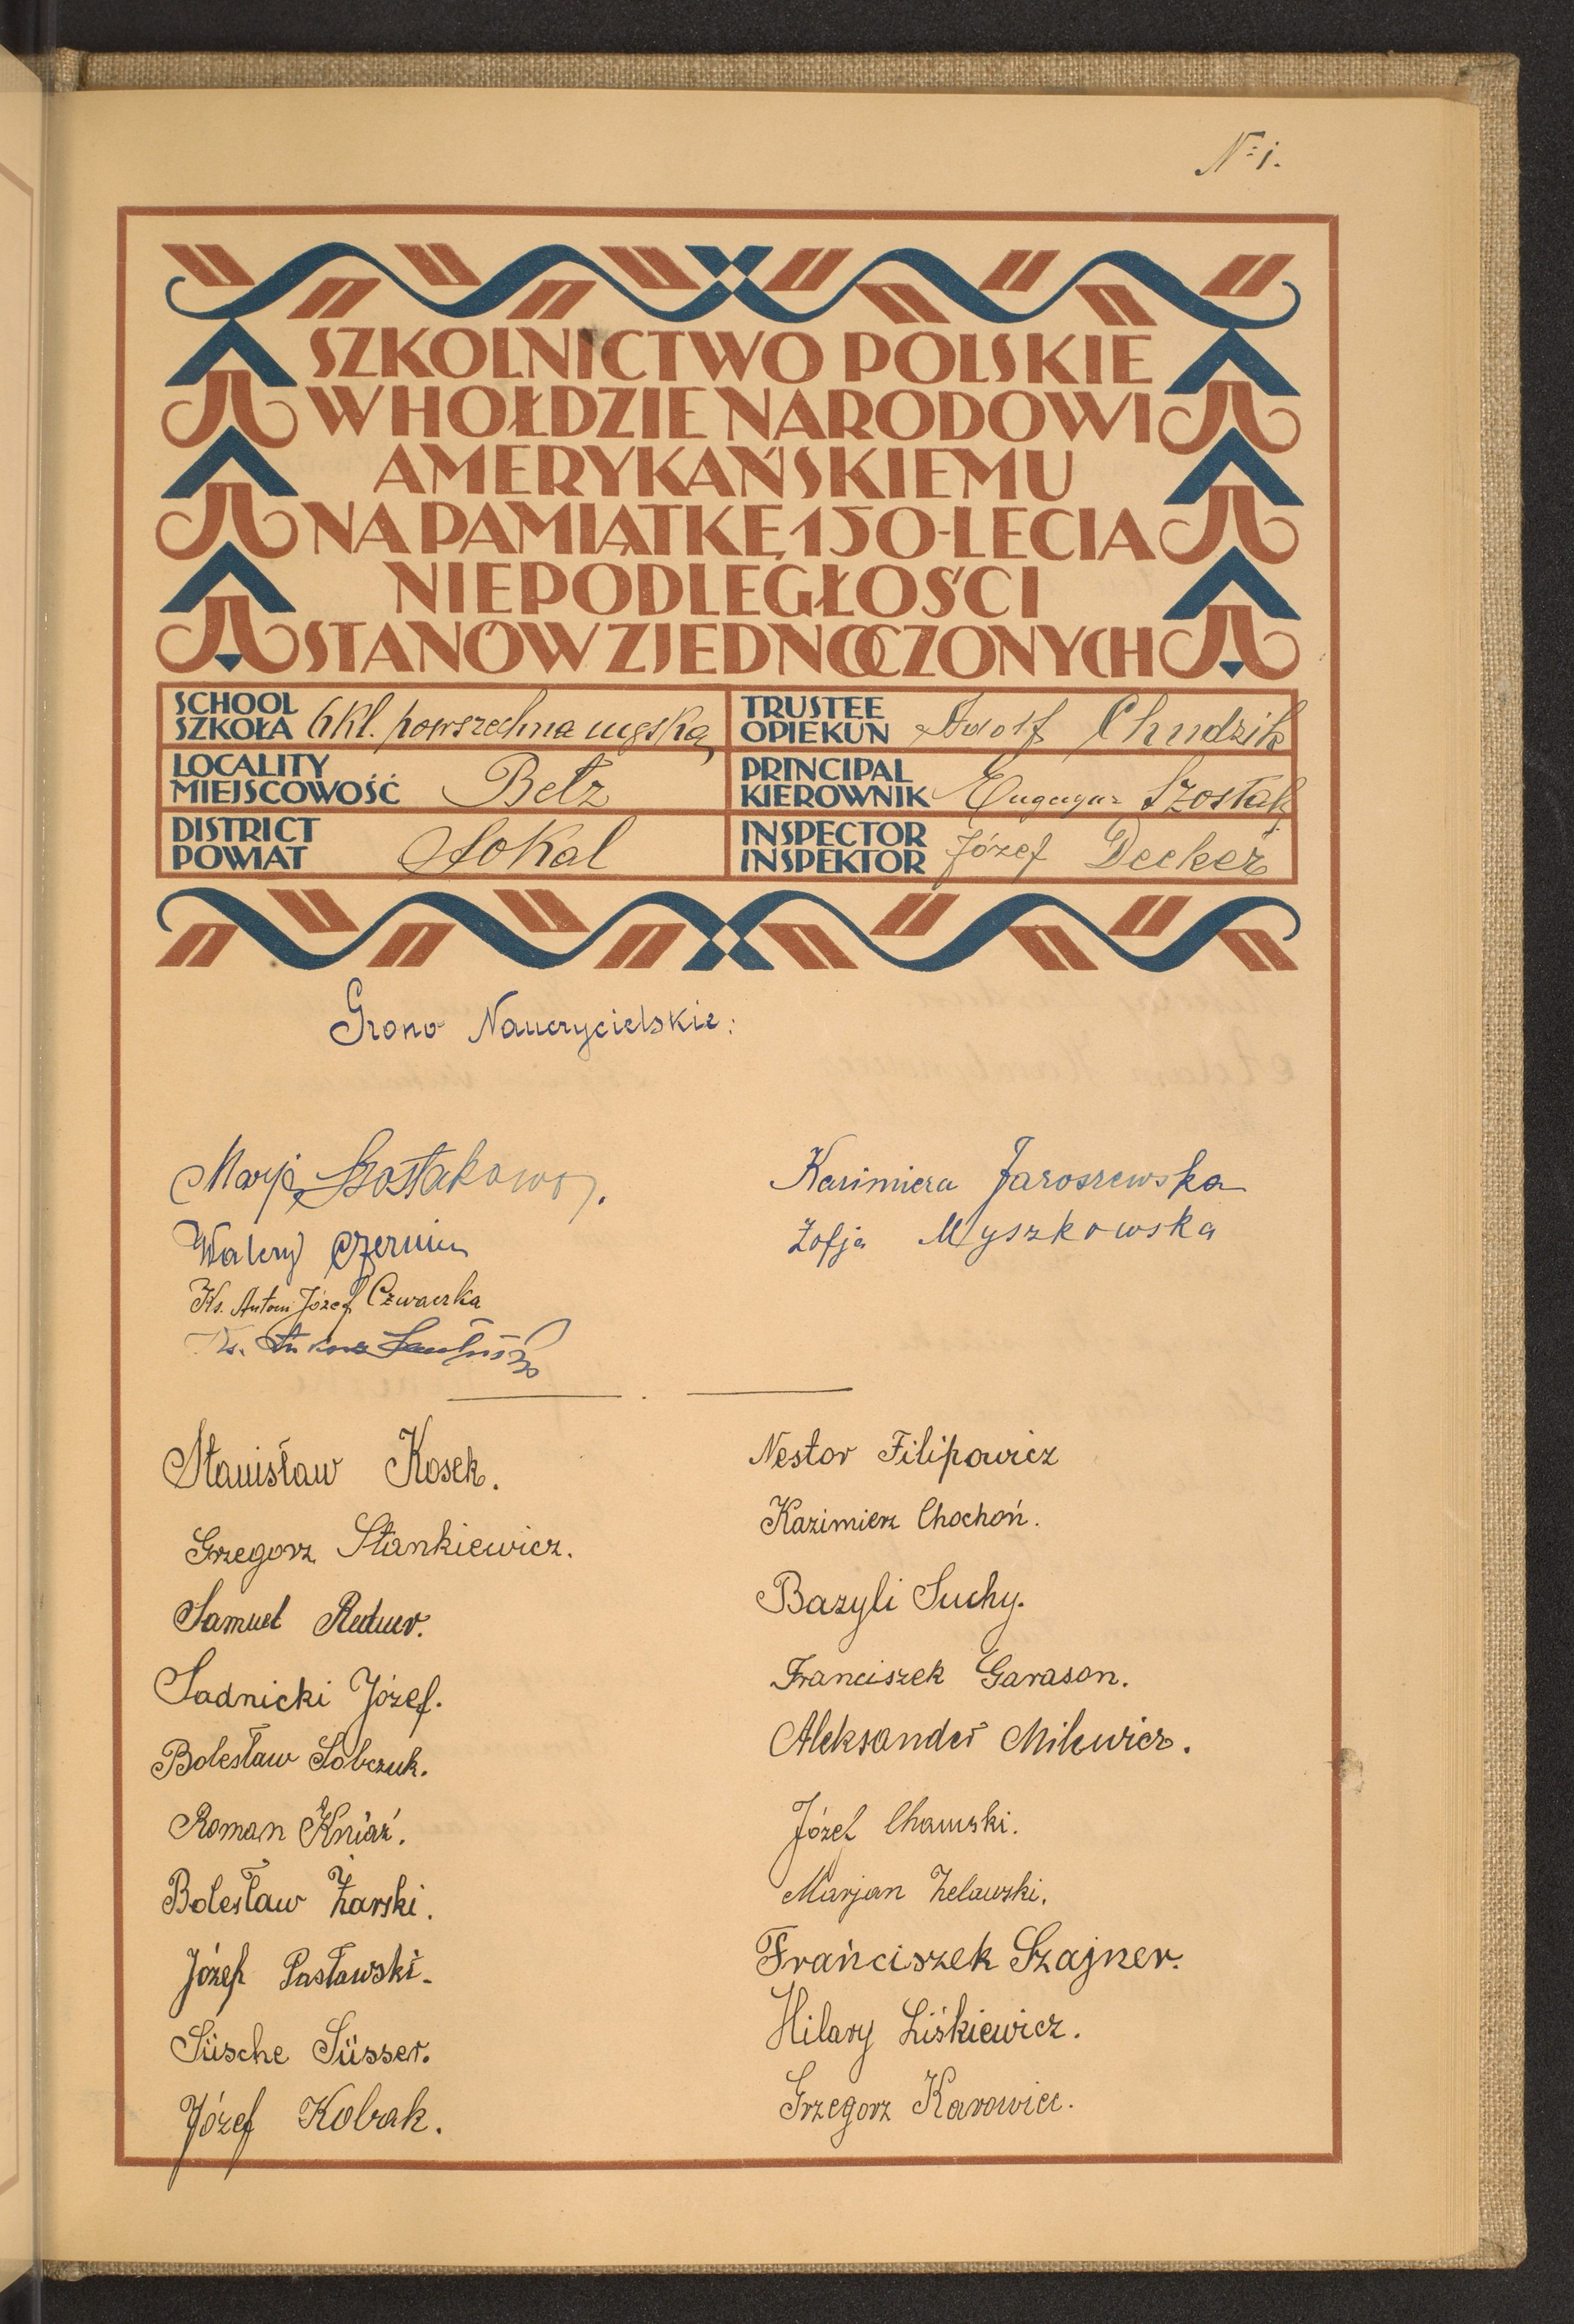 No 1.
SZKOLNICTWO POLSKIE
W HOŁDZIE NARODOWI
AMERYKAŃSKIEMU
NA PAMIĄTKĘ 150-LECIA
NIEPODLEGŁOŚCI
STANÓW ZJEDNOCZONYCH
SCHOOL
SZKOŁA 6 kl. powszechna męska
LOCALITY
MIEJSCOWOŚĆ Bełz
DISTRICT
POWIAT Sokal
TRUSTEE
OPIEKUN Adolf Chudzik
PRINCIPAL
KIEROWNIK Szostak
INSPECTOR
INSPEKTOR Józef Decker
Grono Nauczycielskie:
Marja Szostakowa.
Walery
Ks. Antoni Józef Czwaczka
Ks.
Kazimiera Jaroszewska
Zofja Myszkowska
Stanisław Kosek.
Grzegorz Stankiewicz.
Samuel
Sadnicki Józef.
Bolesław Sobczuk.
Roman Kniaź.
Bolesław Żarski.
Józef Pasławski.
Süsche Süsser.
Józef Kobak.
Nestor Filipowicz
Kazimierz Chochoń.
Bazyli Suchy.
Franciszek Garason.
Aleksander Milewicz.
Józef
Marjan Zelawski.
Frańciszek Szajner.
Hilary Liśkiewicz.
Grzegorz Karowiec.